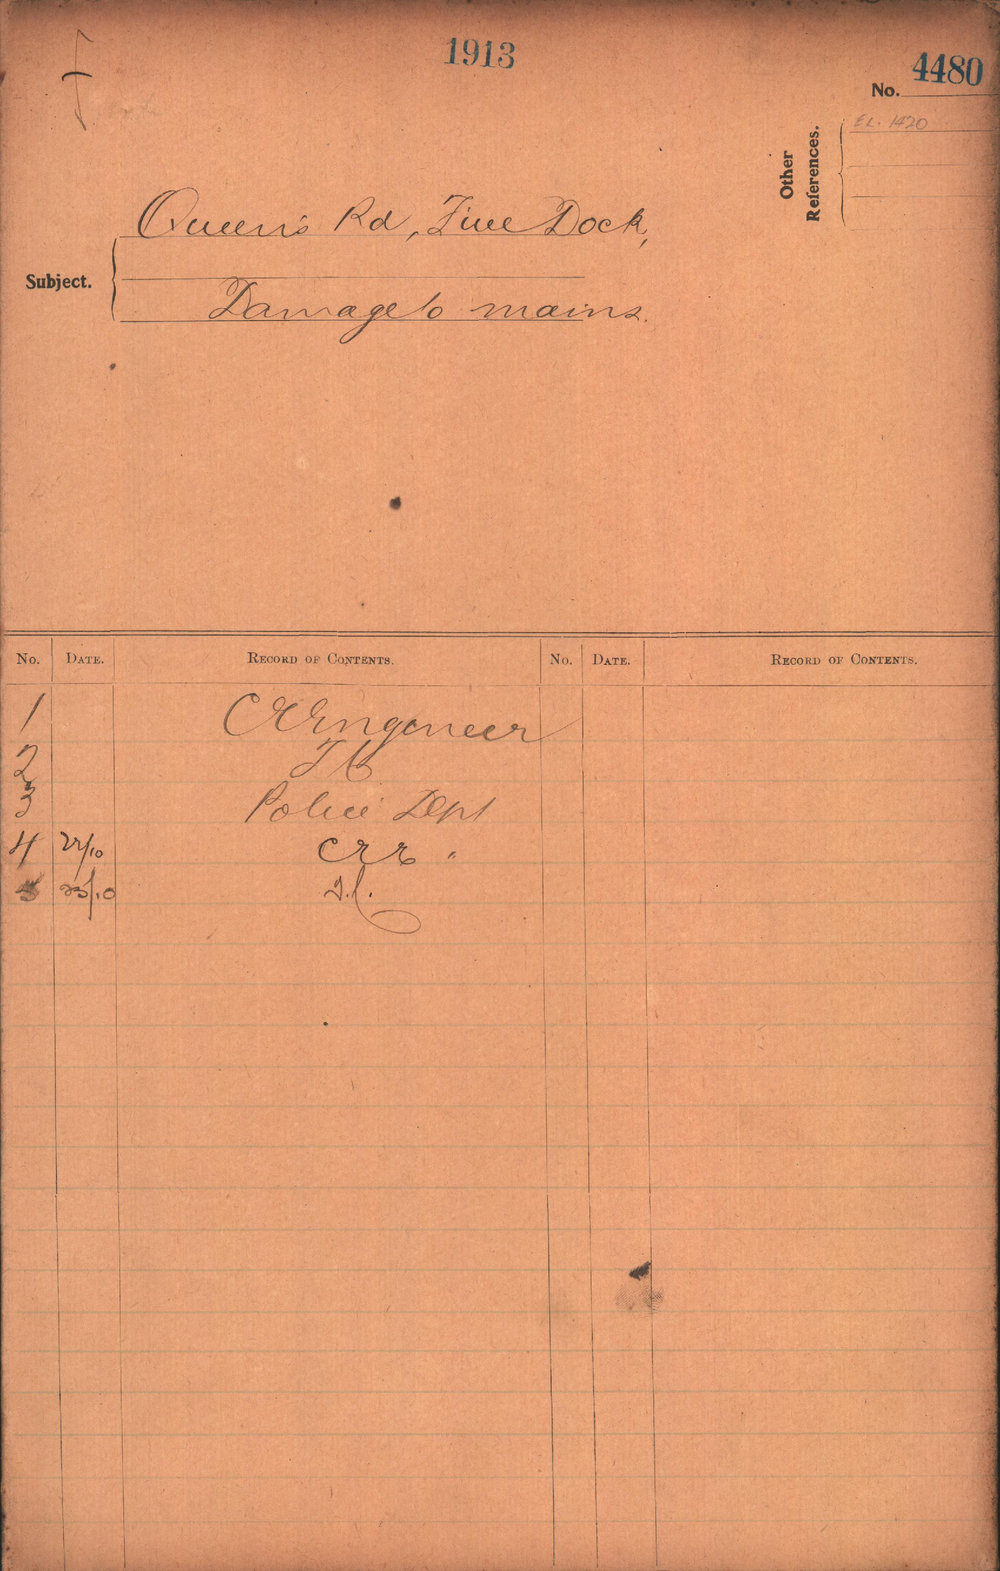 1913
No. 4480
Other References.
EL. 1420
Subject.
Queen's Rd, Five Dock,
Damage to mains.
No. DATE. RECORD OF CONTENTS. No. DATE. RECORD OF CONTENTS.
1 Engineer
2
3 Police Dept
4 22/10
5 23/10